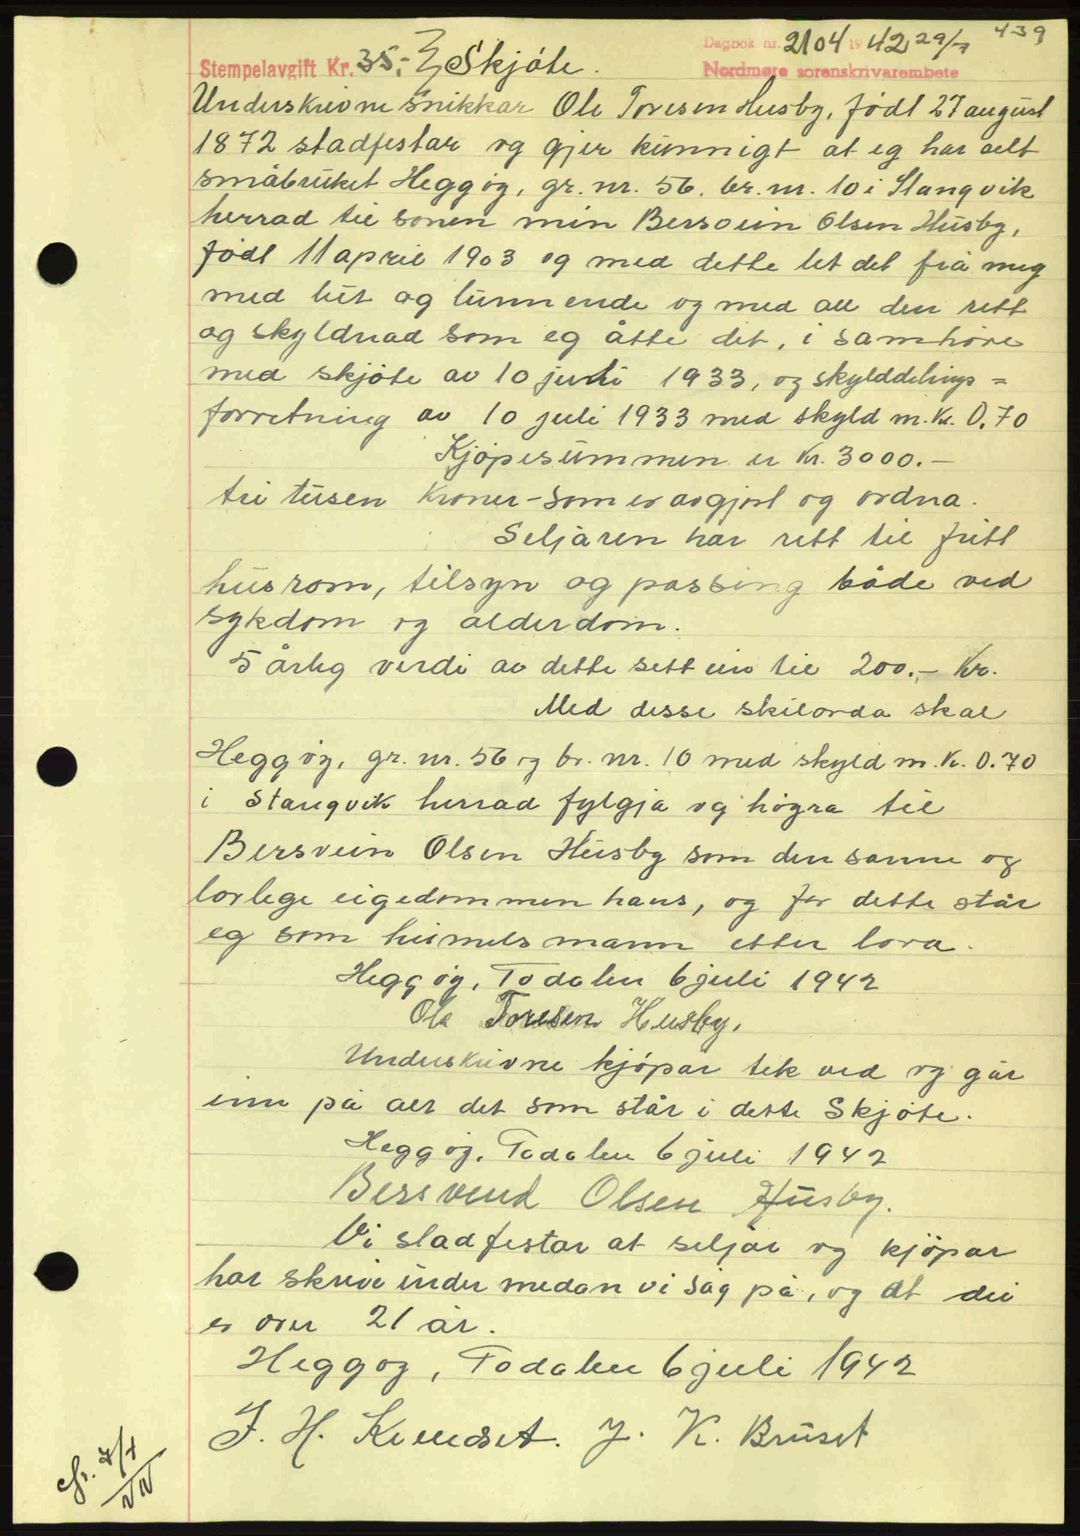 439
Dagbok nr. 2104 19 42 29/7
Stempelavgift Kr. 35,- Skjöte.
Nordmøre sorenskrivarembete
Underskrivne snikkar Ole Toresen Husby, födt 27 august
1872 stadfestar og gjer kunnigt at eg har selt
småbruket Heggöy, gr. nr. 56. br. nr. 10 i Stangvik
herrad til sonen min Bersvein Olsen Husby,
födt 11 april 1903 og med dette let det frå meg
med lut og lunnende og med all den rett
og skyldnad som eg åtte det, i samhöve
med skjöte av 10 juli 1933, og skylddelings =
forretning av 10 juli 1933 med skyld m. Kr. 0.70
Kjöpesummen er Kr. 3000.-
tri tusen Kroner - som er avgjort og ordna.
Seljaren har rett til fritt
husrom, tilsyn og passing både ved
sykdom og alderdom.
5 årleg verdi av dette sett ein til 200.- Kr.
Med desse skilorda skal
Heggöy, gr. nr. 56 og br. nr. 10 med skyld m. Kr. 0.70
i Stangvik herrad fylgja og högra til
Bersvein Olsen Husby som den sanne og
lovlege eigedommen hans, og for dette står
eg som heimelsmann etter lova.
Heggöy, Todalen 6 juli 1942
Ole Toresen Husby.
Underskrivne kjöpar tek ved og går
inn på alt det som står i dette Skjöte.
Heggöy, Todalen 6 juli 1942
Bersvend Olsen Husby.
Vi stadfestar at seljar og kjöpar
har skrive under medan vi såg på, og at dei
er over 21 år.
Heggöy, Todalen 6 juli 1942
J. H. Kvendset. J. K. Bruset